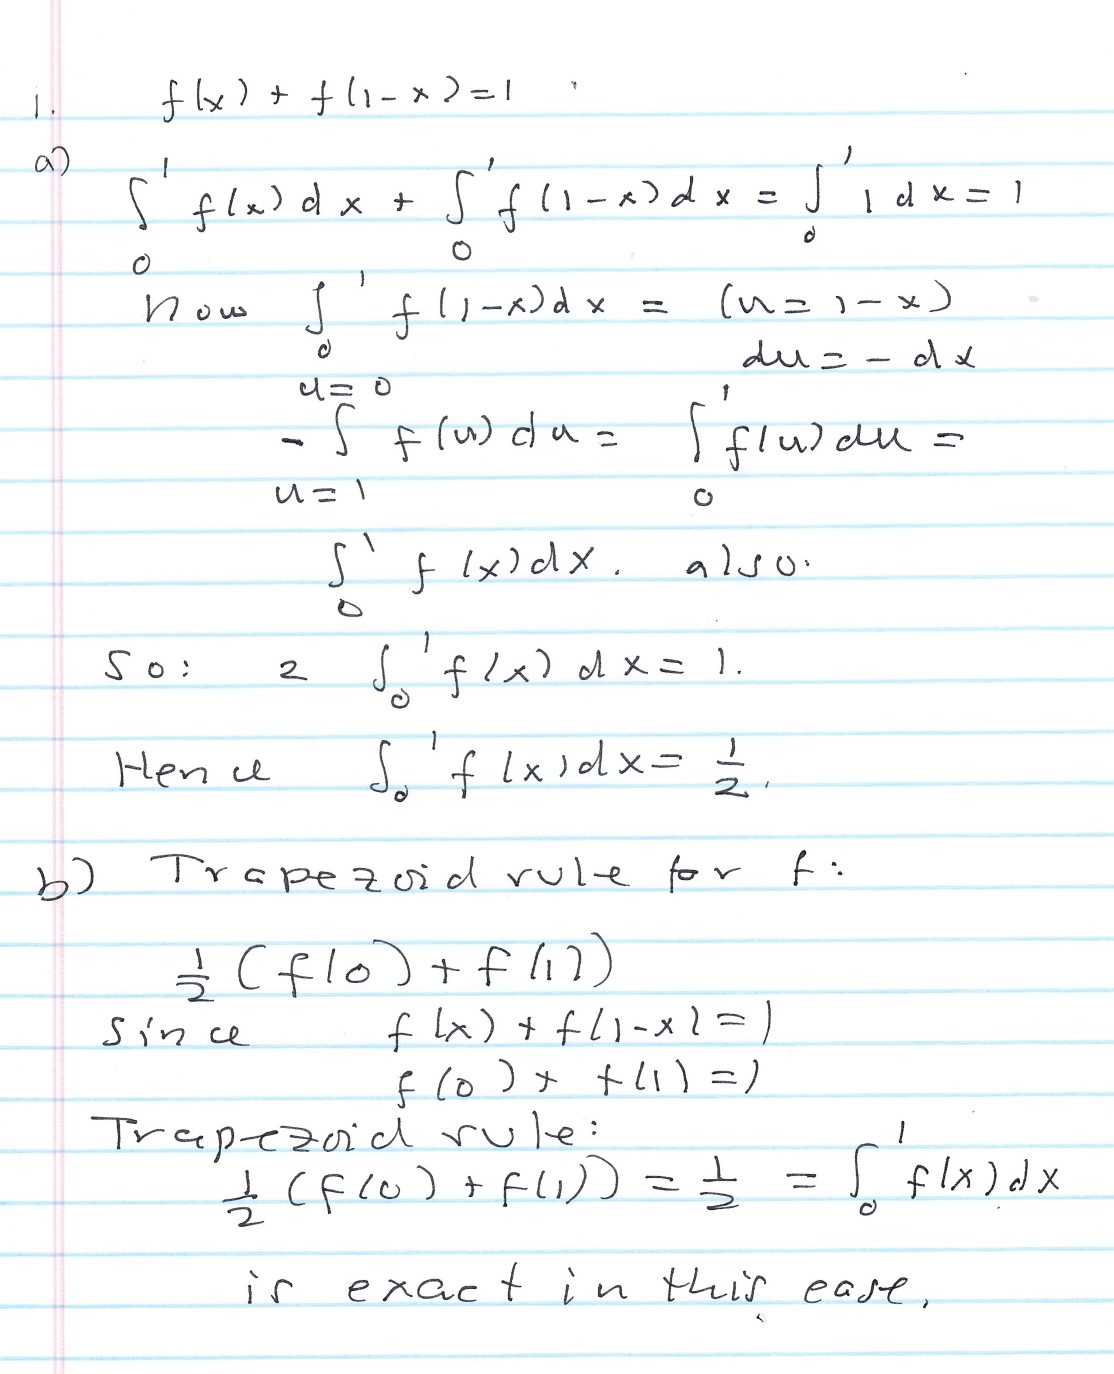 1. f(x) + f(1-x) = 1
a)
∫₀¹ f(x) dx + ∫₀¹ f(1-x) dx = ∫₀¹ 1 dx = 1
Now ∫₀¹ f(1-x) dx = (u = 1-x)
du = -dx
-∫_{u=1}^{u=0} f(u) du = ∫₀¹ f(u) du =
∫₀¹ f(x) dx. also.
So: 2 ∫₀¹ f(x) dx = 1.
Hence ∫₀¹ f(x) dx = 1/2.
b) Trapezoid rule for f:
1/2 (f(0) + f(1))
Since f(x) + f(1-x) = 1
f(0) + f(1) = 1
Trapezoid rule:
1/2 (f(0) + f(1)) = 1/2 = ∫₀¹ f(x) dx
is exact in this case.